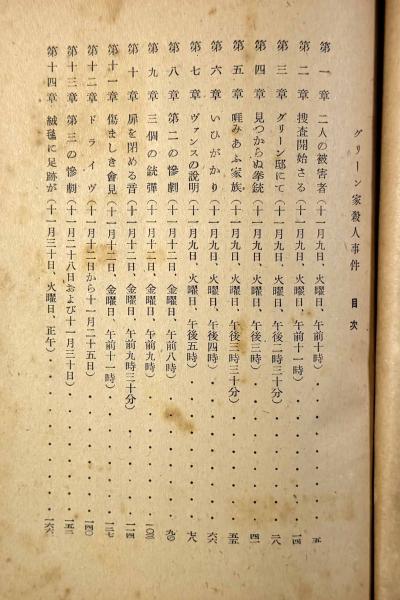 グリーン家殺人事件　目次
第一章　二人の被害者（十一月九日、火曜日、午前十時）・・・・・・・五
第二章　捜査開始さる（十一月九日、火曜日、午前十一時）・・・・・・・一四
第三章　グリーン邸にて（十一月九日、火曜日、午後二時三十分）・・・・・・・二八
第四章　見つからぬ拳銃（十一月九日、火曜日、午後三時）・・・・・・・四一
第五章　啀みあふ家族（十一月九日、火曜日、午後三時三十分）・・・・・・・五五
第六章　いひがかり（十一月九日、火曜日、午後四時）・・・・・・・六六
第七章　ヴァンスの説明（十一月九日、火曜日、午後五時）・・・・・・・七八
第八章　第二の惨劇（十一月十二日、金曜日、午前八時）・・・・・・・九〇
第九章　三個の銃彈（十一月十二日、金曜日、午前九時）・・・・・・・一〇三
第十章　扉を閉める音（十一月十二日、金曜日、午前九時三十分）・・・・・・・一一四
第十一章　傷ましき會見（十一月十二日、金曜日、午前十一時）・・・・・・・一二七
第十二章　ドライヴ（十一月十二日から十一月二十五日）・・・・・・・一四〇
第十三章　第三の惨劇（十一月二十八日および十一月三十日）・・・・・・・一五二
第十四章　絨毯に足跡が（十一月三十日、火曜日、正午）・・・・・・・一六六